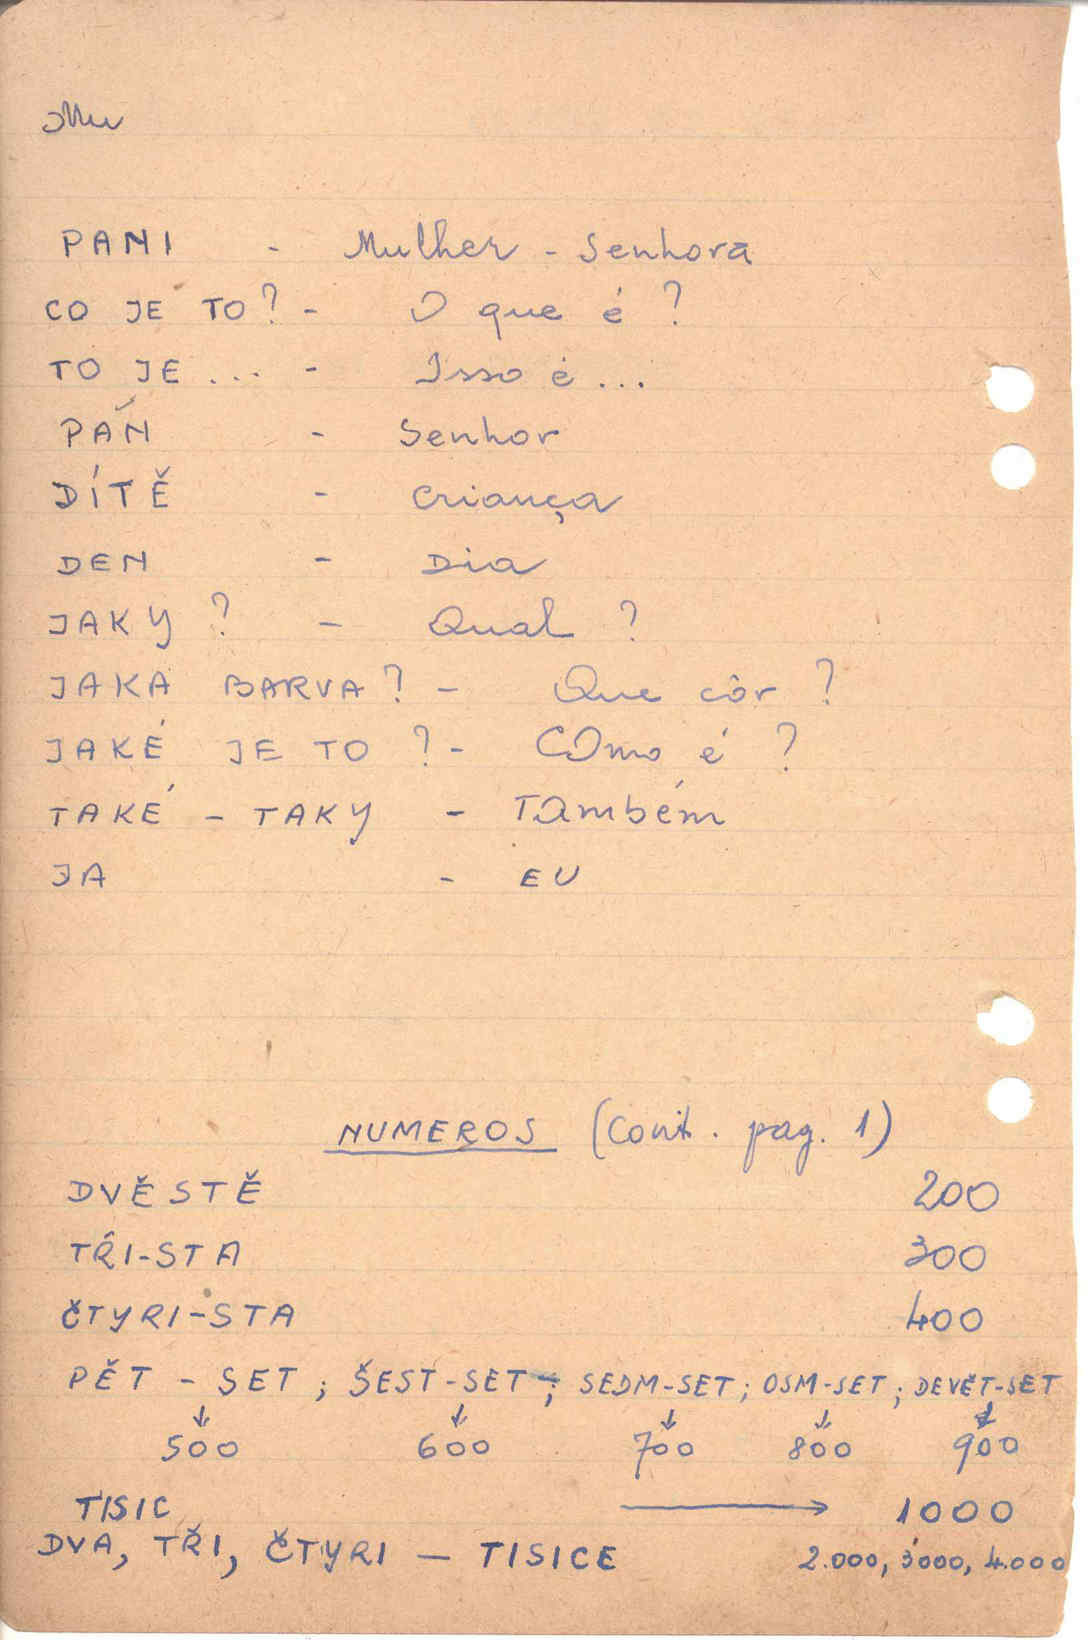 Mu
PANI - Mulher - Senhora
CO JE TO? - O que é ?
TO JE ... - Isso é ...
PÁN - Senhor
DÍTĚ - criança
DEN - Dia
JAKY ? - Qual ?
JAKA BARVA? - Que côr ?
JAKÉ JE TO ? - COmo é ?
TAKÉ - TAKY - Também
JA - EU
NUMEROS (Cont. pag. 1)
DVĚSTĚ 200
TŘI-STA 300
ČTYRI-STA 400
PĚT - SET ; ŠEST-SET ; SEDM-SET ; OSM-SET ; DEVĚT-SET
↓ ↓ ↓ ↓ ↓
500 600 700 800 900
TISIC → 1000
DVA, TŘI, ČTYRI - TISICE 2.000, 3000, 4.000